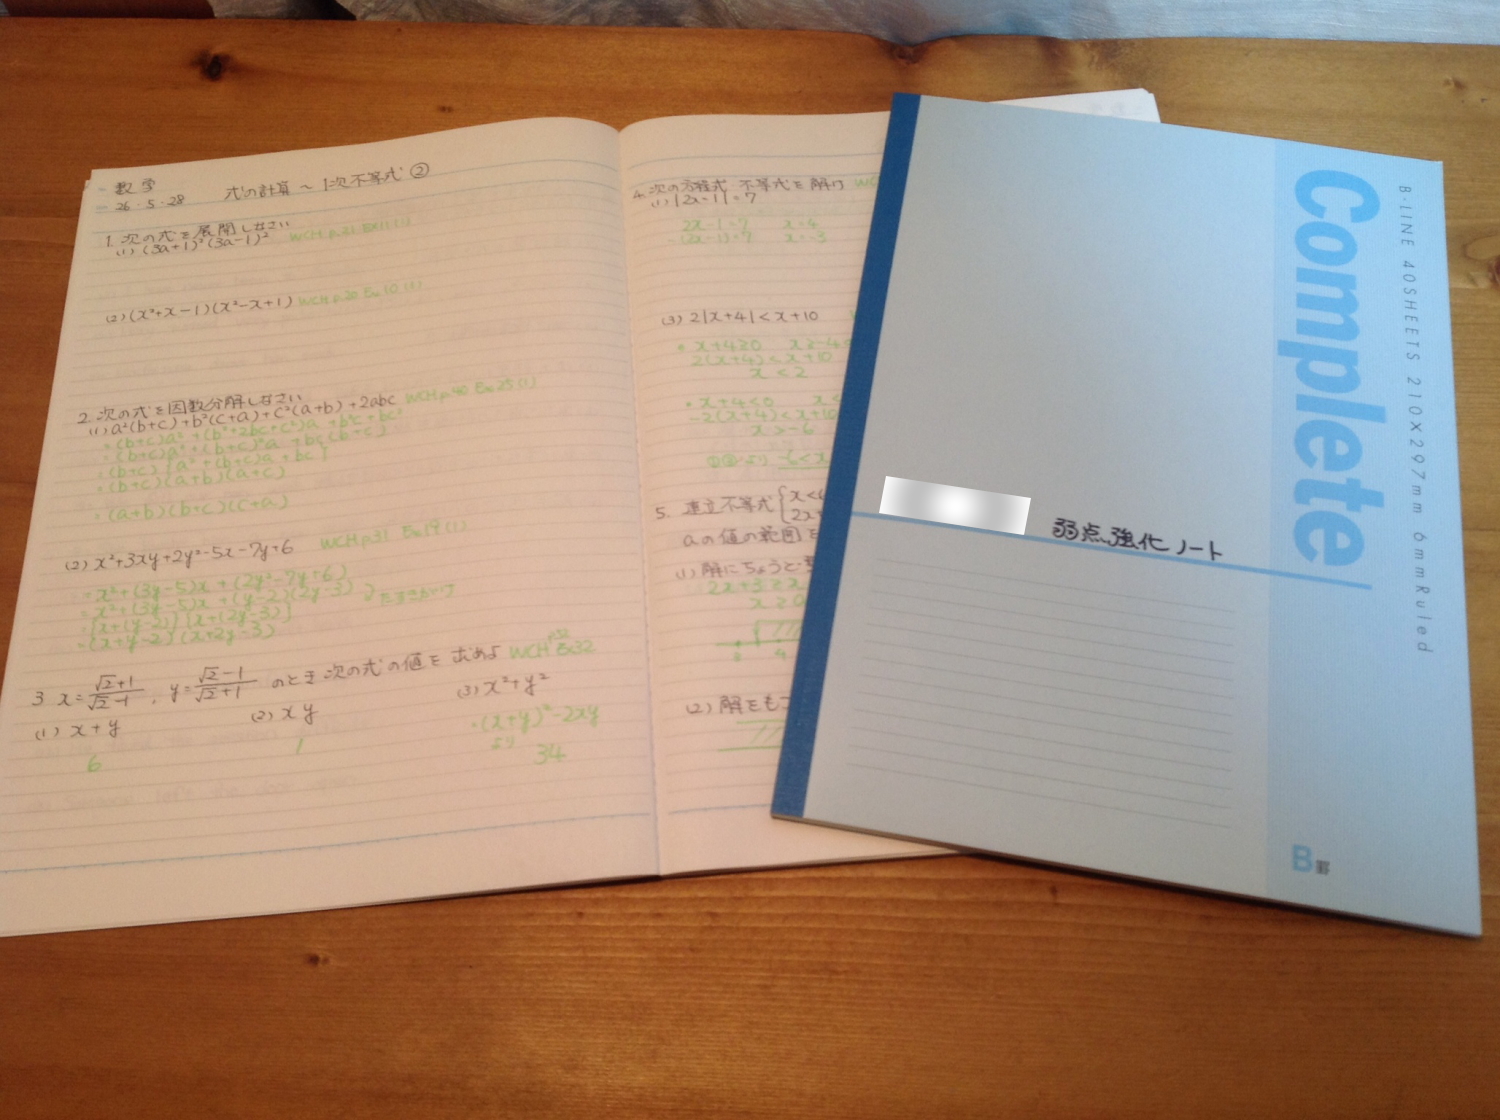 数学
26・5・28 式の計算〜1次不等式②
1. 次の式を展開しなさい
(1) (3a+1)²(3a-1)² WCH p.31 Ex11(1)
(2) (x²+x-1)(x²-x+1) WCH p.30 Ex10(1)
2. 次の式を因数分解しなさい
(1) a²(b+c)+b²(c+a)+c²(a+b)+2abc WCH p.40 Ex25(1)
=(b+c)a²+(b²+2bc+c²)a+b²c+bc²
=(b+c)a²+(b+c)²a+bc(b+c)
=(b+c){a²+(b+c)a+bc}
=(b+c)(a+b)(a+c)
=(a+b)(b+c)(c+a)
(2) x²+3xy+2y²-5x-7y+6 WCH p31 Ex19(1)
=x²+(3y-5)x+(2y²-7y+6)
=x²+(3y-5)x+(y-2)(2y-3) たすきがけ
=[x+(y-2)][x+(2y-3)]
=(x+y-2)(x+2y-3)
3 x=√2+1/√2-1, y=√2-1/√2+1 のとき次の式の値を求めよ WCH p52 Ex32
(1) x+y (2) xy (3) x²+y²
=(x+y)²-2xy
より
6 1 34
4. 次の方程式 不等式を解け WC
(1) |2x-1|=7
2x-1=7 x=4
-(2x-1)=7 x=-3
(3) 2|x+4|<x+10
• x+4≧0 x≧-4
2(x+4)<x+10
x<2
• x+4<0 x<
-2(x+4)<x+10
x>-6
①②より -6<x
5. 連立不等式{x<
2x
aの値の範囲を
(1) 解にちょうど
2x+3≧x
x≧a
(2) 解をもつ
Complete
B-LINE 40SHEETS 210×297mm 6mmRuled
弱点強化ノート
B罫